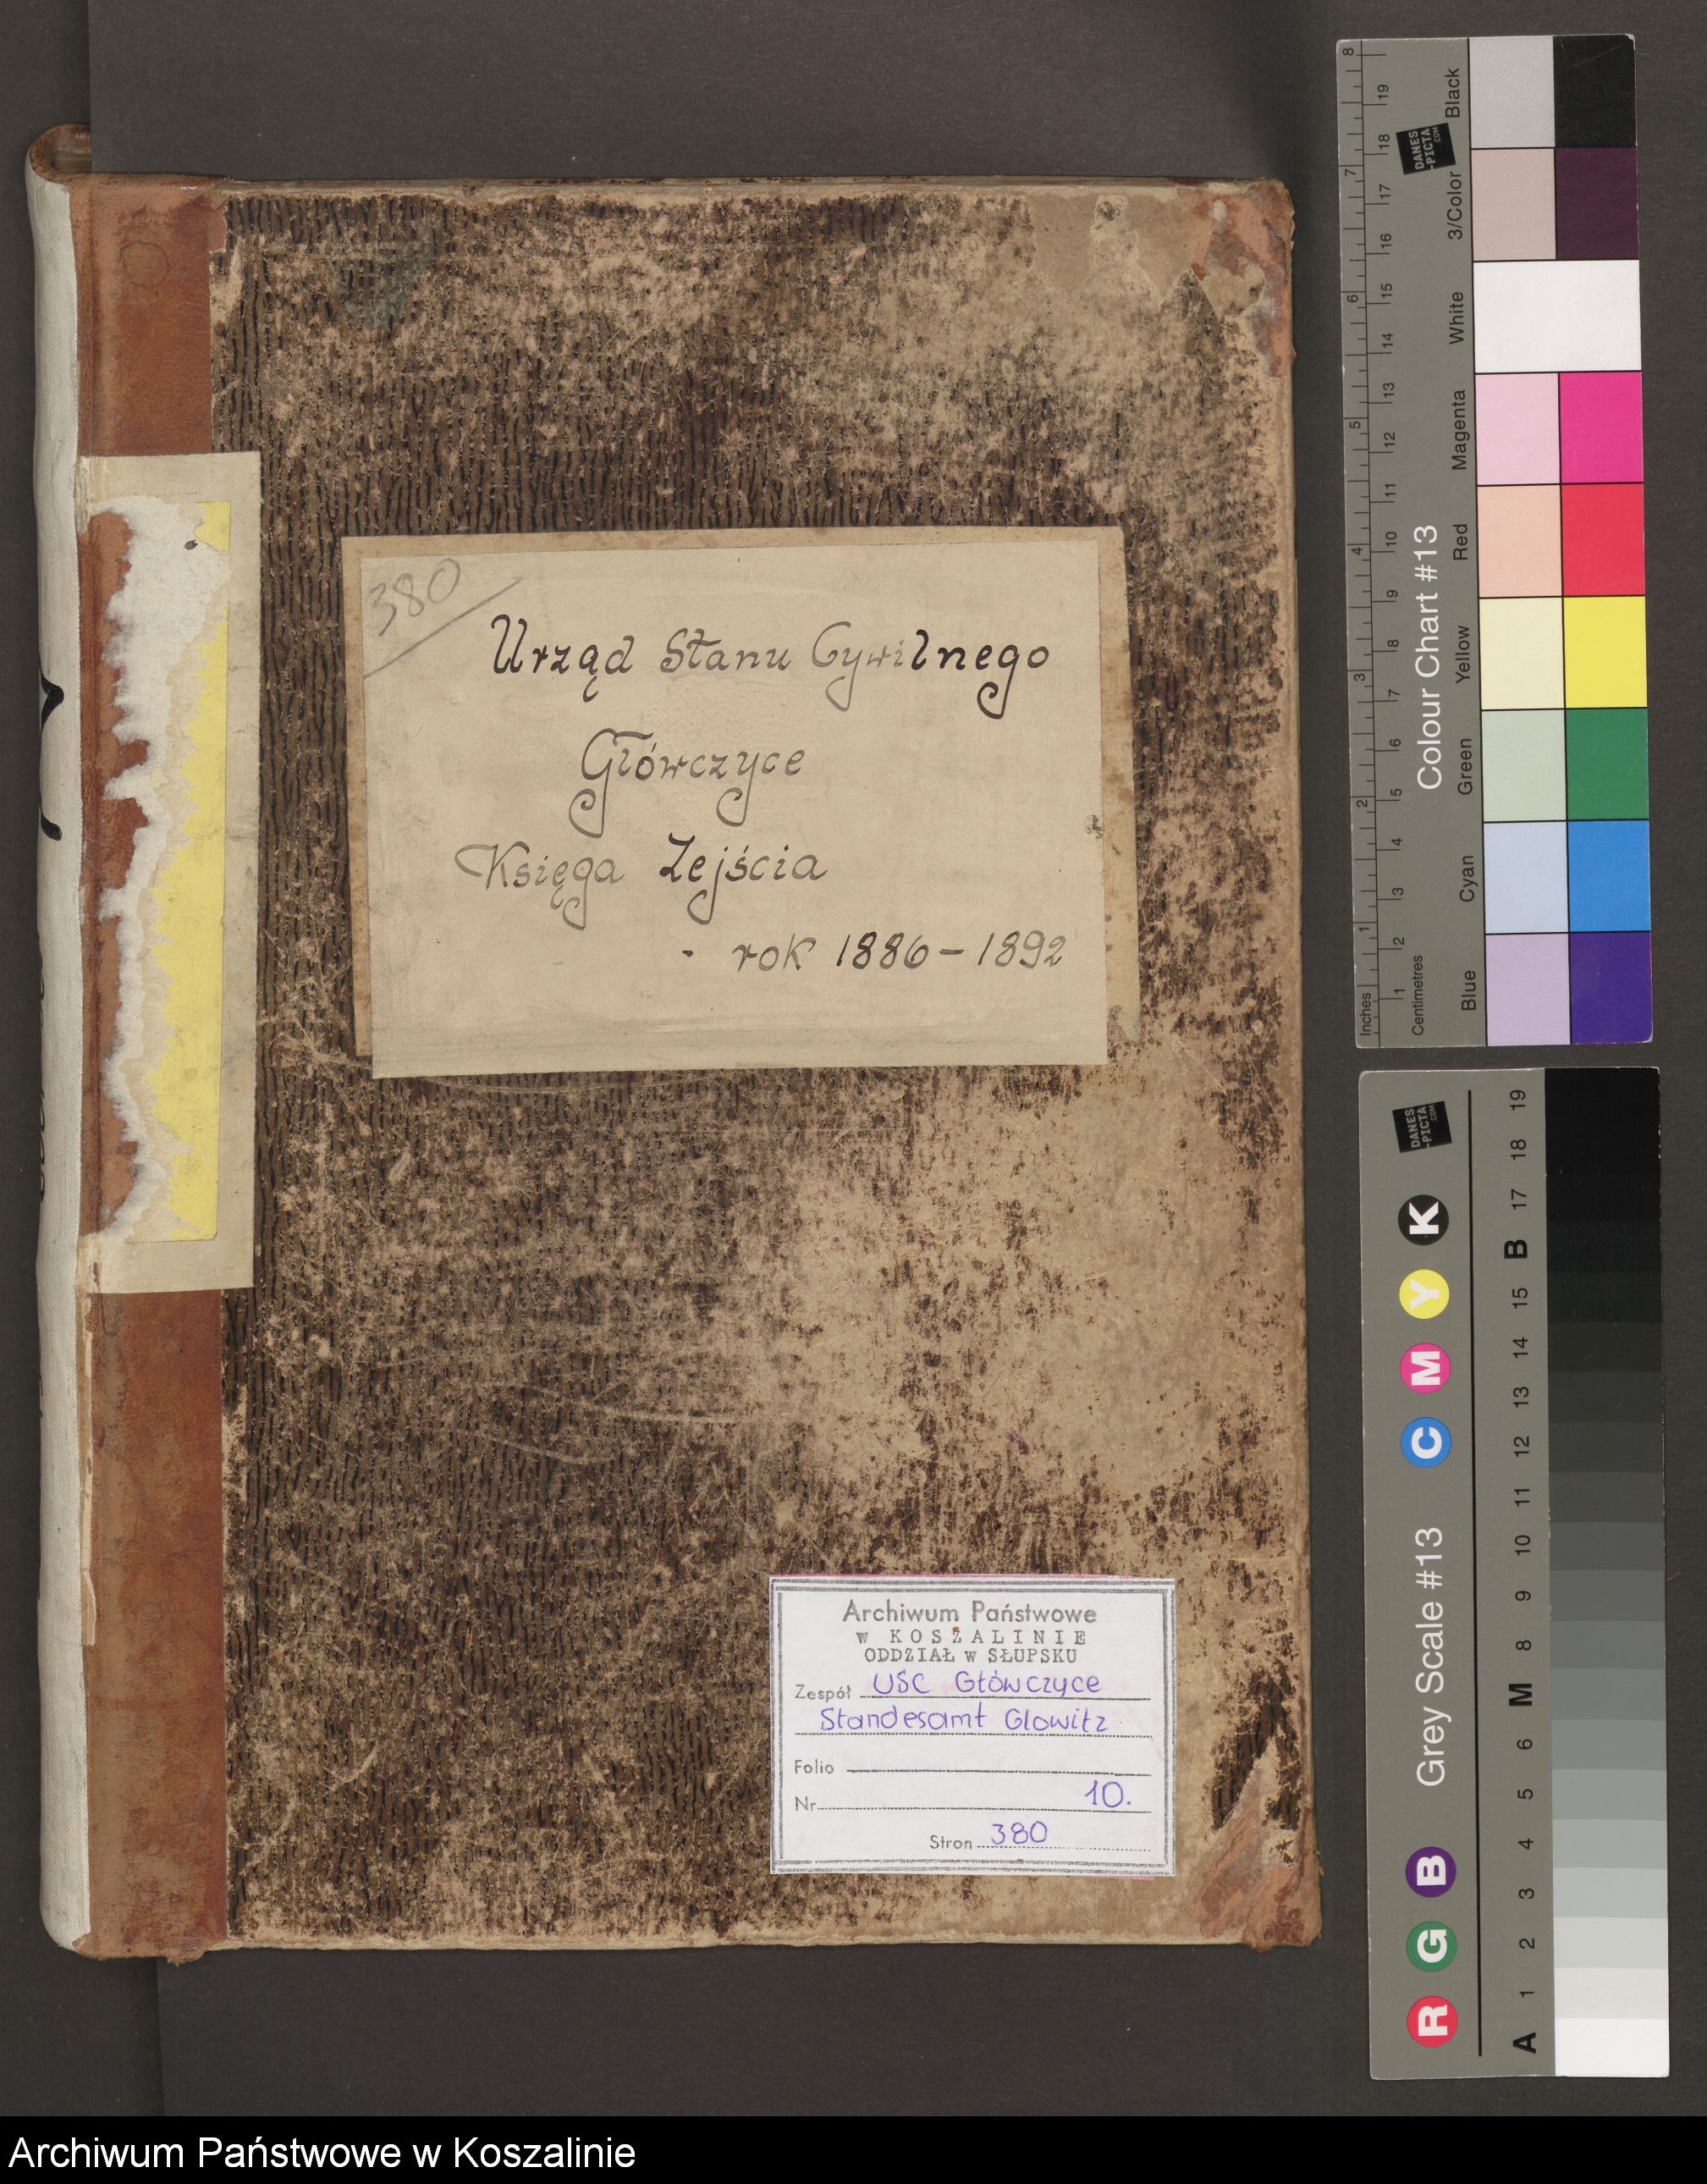 380
Urząd Stanu Cywilnego
Główczyce
Księga Zejścia
- rok 1886 - 1892
Archiwum Państwowe
w KOSZALINIE
ODDZIAŁ w SŁUPSKU
Zespół USC Główczyce
Standesamt Glowitz
Folio
Nr 10.
Stron 380
Inches 1 2 3 4 5 6 7 8
Centimetres 1 2 3 4 5 6 7 8 9 10 11 12 13 14 15 16 17 18 19
Colour Chart #13
Blue Cyan Green Yellow Red Magenta White 3/Color Black
DANES
-PICTA
.COM
R G B Grey Scale #13 C M Y K
DANES
-PICTA
.COM
A 1 2 3 4 5 6 M 8 9 10 11 12 13 14 15 B 17 18 19
Archiwum Państwowe w Koszalinie